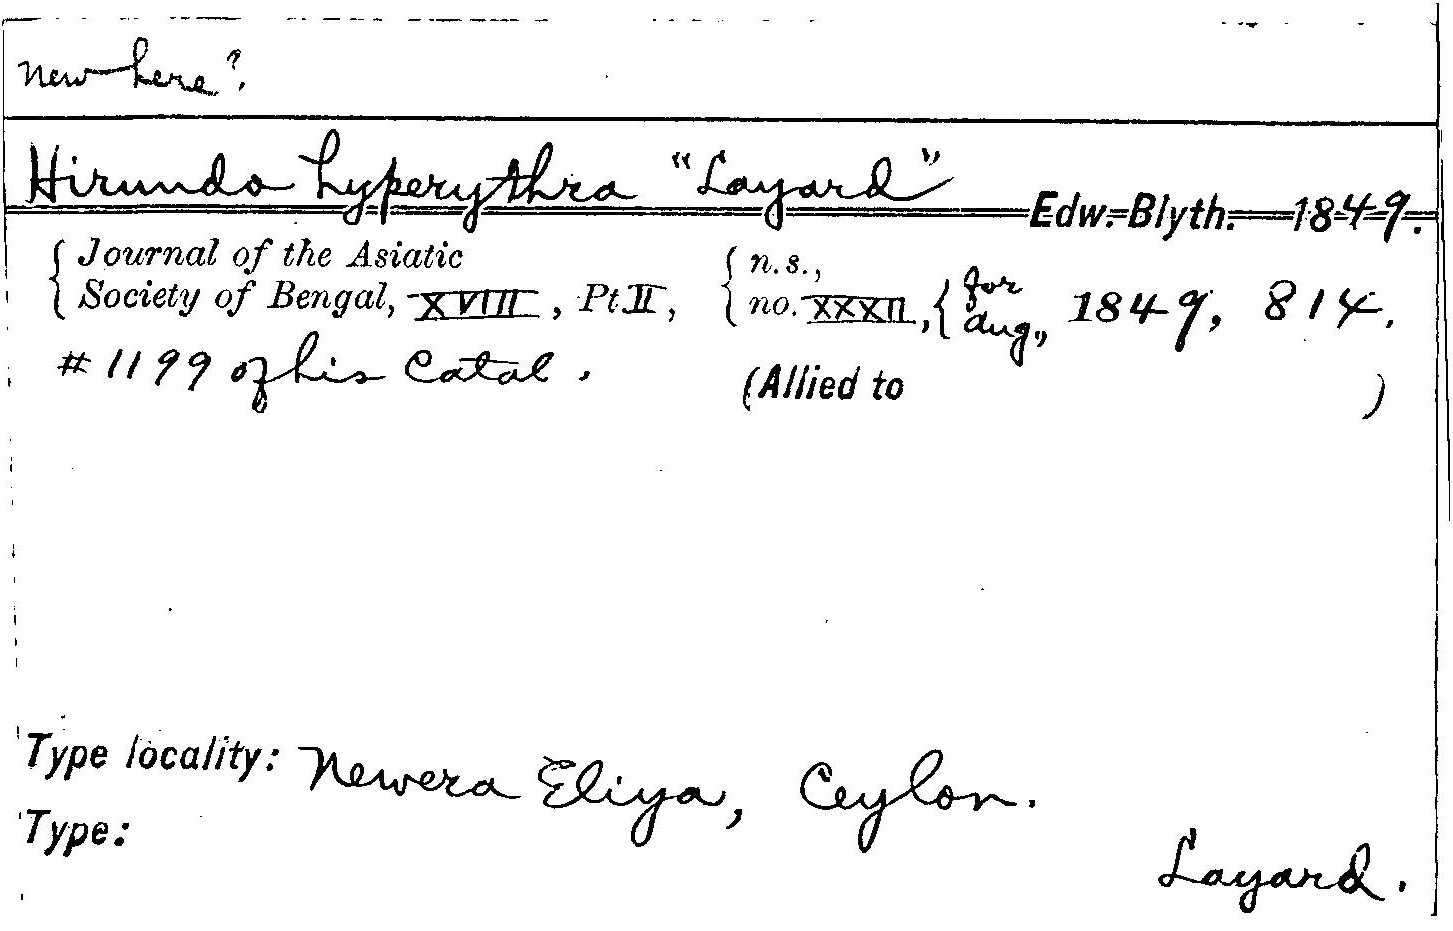 new here?
Hirundo hyperythra "Layard" Edw. Blyth. 1849.
{ Journal of the Asiatic { n.s.,
Society of Bengal, XVIII, Pt. II, no. XXXII, { for Aug., 1849, 814.
#1199 of his Catal. (Allied to )
Type locality: Newera Eliya, Ceylon.
Type:
Layard.